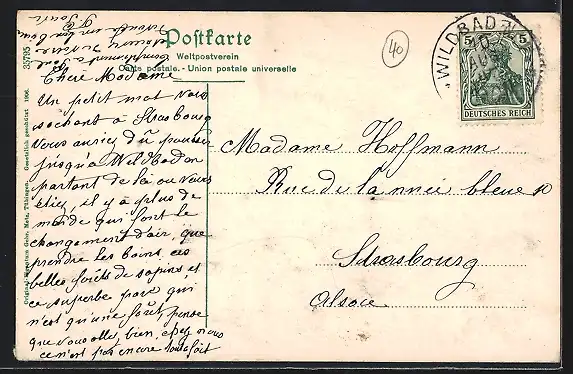 Postkarte
Weltpostverein
Carte postale. - Union postale universelle
35795
40
WILDBAD
5 5
DEUTSCHES REICH
Chère Madame
Un petit mot vous
sachant à Strasbourg
Vous auriez dû pousser
jusqu'à Wildbad en
partant de là où vous
étiez, il y a plus de
monde qui font le
changement d'air, que
prendre les bains, ces
belles forêts de sapins et
ce superbe parc qui
n'est qu'une forêt, pense
que vous allez bien, chez nous
ce n'est pas encore tout à fait
Madame Hoffmann
Rue de la nuée bleue 10
Strasbourg
Alsace